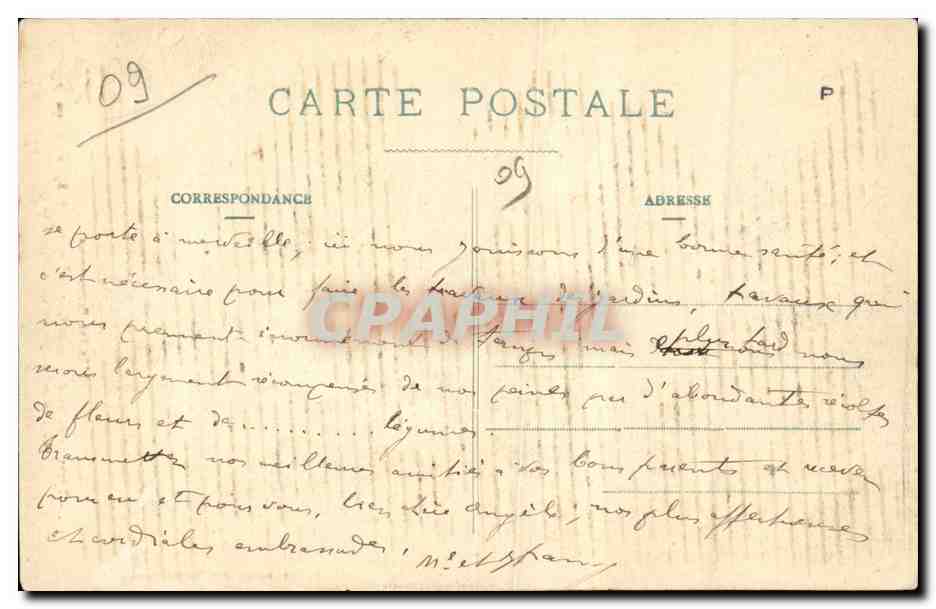 09
CARTE POSTALE
P
09
CORRESPONDANCE
ADRESSE
se porte à merveille; ici nous jouissons d'une bonne santé; et
c'est nécessaire pour faire les travaux de jardins, travaux qui
nous prennent énormément de temps mais plus tard nous
serons largement récompensés de nos peines par d'abondantes récoltes
de fleurs et de .......... légumes.
Transmettez nos meilleures amitiés à vos bons parents et recevez
pour eux et pour vous, très chère Angèle; nos plus affectueuses
et cordiales embrassades.
Mr et
CPAPHIL